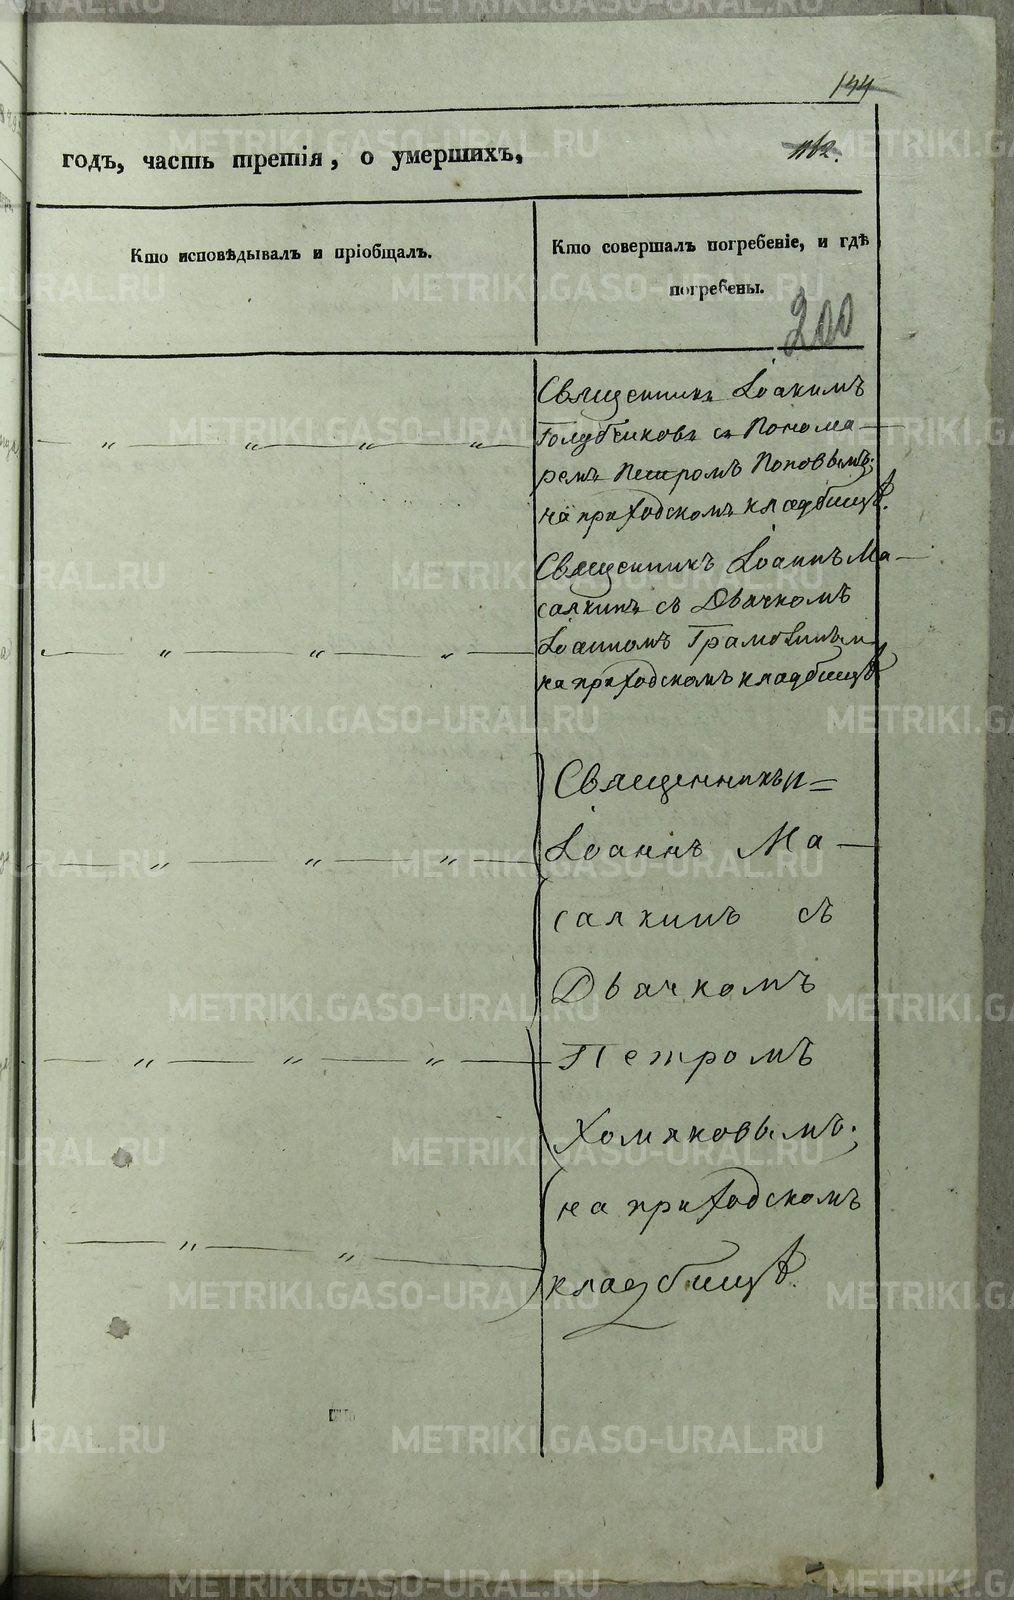 144
годъ, часть третія, о умершихъ,
1162.
Кто исповѣдывалъ и пріобщалъ.
Кто совершалъ погребеніе, и гдѣ
погребены.
200
Священникъ Іоакимъ
Голубчиковъ съ Понома-
ремъ Петромъ Поповымъ.
на приходскомъ кладбищѣ.
Священникъ Іоаннъ Ма-
салкинъ съ Дьячкомъ
Іоанномъ
на приходскомъ кладбищѣ
Священникъ
Іоаннъ Ма-
салкинъ съ
Дьячкомъ
Петромъ
Хомяковымъ.
на приходскомъ
кладбищѣ.
METRIKI.GASO-URAL.RU